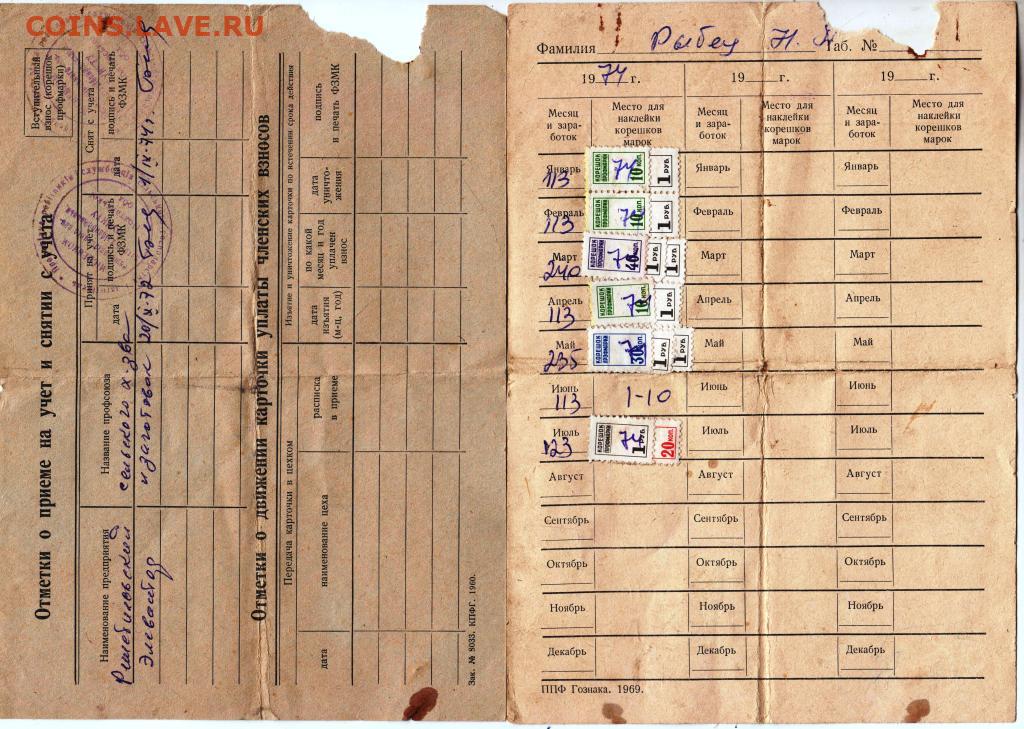 COINS.LAVE.RU
Отметки о приеме на учет и снятии с учета
Вступительный
взнос (корешок
профмарки)
Наименование предприятия
Название профсоюза
Принят на учет
дата
подпись и печать
ФЗМК
Снят с учета
дата
подпись и печать
ФЗМК
сельского х-ва
и заготовок
элеватор
20/X-72
1/IX-74г.
Отметки о движении карточки уплаты членских взносов
Передача карточки в цехком
Изъятие и уничтожение карточки по истечении срока действия
дата
наименование цеха
расписка
в приеме
дата
изъятия
(м-ц, год)
по какой
месяц и год
уплачен
взнос
дата
уничто-
жения
подпись
и печать ФЗМК
Зак. № 8033. КПФГ. 1960.
Фамилия Рыбец Н. Таб. №
1974 г. 19 г. 19 г.
Месяц
и зара-
боток
Место для
наклейки
корешков
марок
Месяц
и зара-
боток
Место для
наклейки
корешков
марок
Месяц
и зара-
боток
Место для
наклейки
корешков
марок
Январь 113 КОРЕШОК ПРОФМАРКИ 10 КОП. 74 1 РУБ. Январь Январь
Февраль 113 КОРЕШОК ПРОФМАРКИ 10 КОП. 74 1 РУБ. Февраль Февраль
Март 240 КОРЕШОК ПРОФМАРКИ 40 КОП. 1 РУБ. 1 РУБ. Март Март
Апрель 113 КОРЕШОК ПРОФМАРКИ 10 КОП. 74 1 РУБ. Апрель Апрель
Май 235 КОРЕШОК ПРОФМАРКИ 30 КОП. 1 РУБ. 1 РУБ. Май Май
Июнь 113 1-10 Июнь Июнь
Июль 123 КОРЕШОК ПРОФМАРКИ 1 РУБ. 74 20 КОП. Июль Июль
Август Август Август
Сентябрь Сентябрь Сентябрь
Октябрь Октябрь Октябрь
Ноябрь Ноябрь Ноябрь
Декабрь Декабрь Декабрь
ППФ Гознака. 1969.